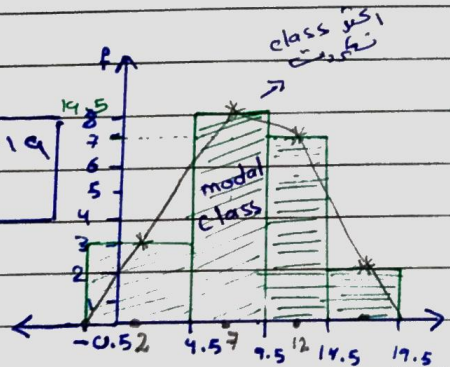 اكثر class
تكرار
f
19.5
19
8
7
6
5
4
3
2
1
modal
class
-0.5 2 4.5 7 9.5 12 14.5 19.5